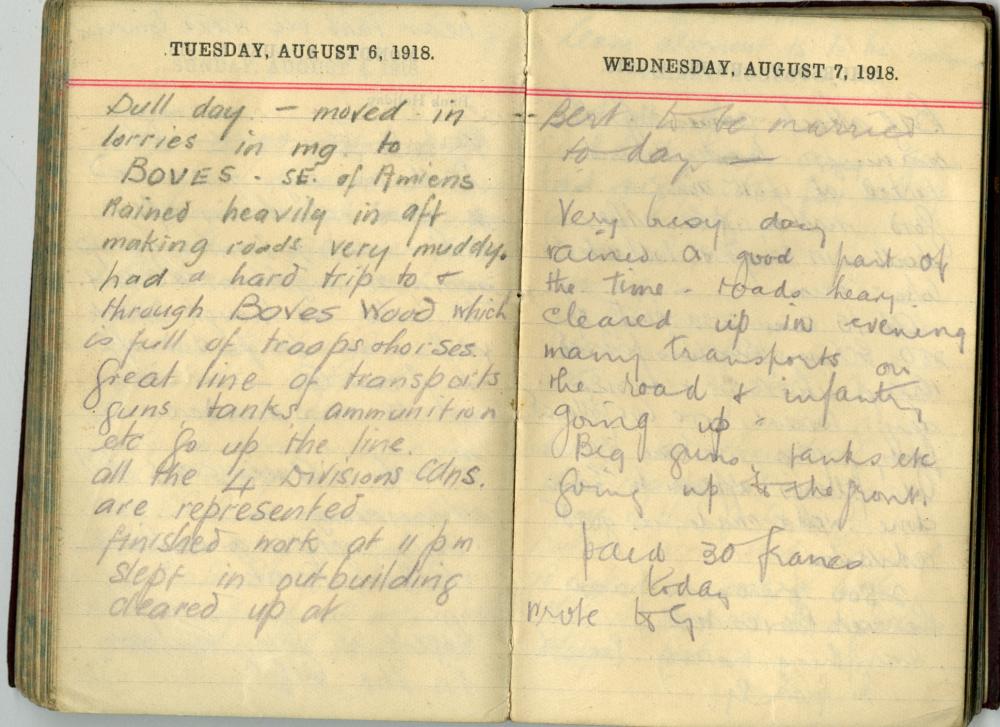 TUESDAY, AUGUST 6, 1918.
Dull day - moved in
lorries in mg. to
BOVES - SE. of Amiens
Rained heavily in aft
making roads very muddy.
had a hard trip to &
through Boves Wood which
is full of troops & horses.
Great line of transports
guns, tanks, ammunition
etc go up the line.
all the 4 Divisions Cdns.
are represented
finished work at 11 pm
slept in outbuilding
cleared up at
WEDNESDAY, AUGUST 7, 1918.
Bert to be married
to-day —
Very busy day
rained a good part of
the time - roads heavy
cleared up in evening
many transports on
the road & infantry
going up -
Big guns, tanks etc
going up to the front
paid 30 francs
today
wrote to G